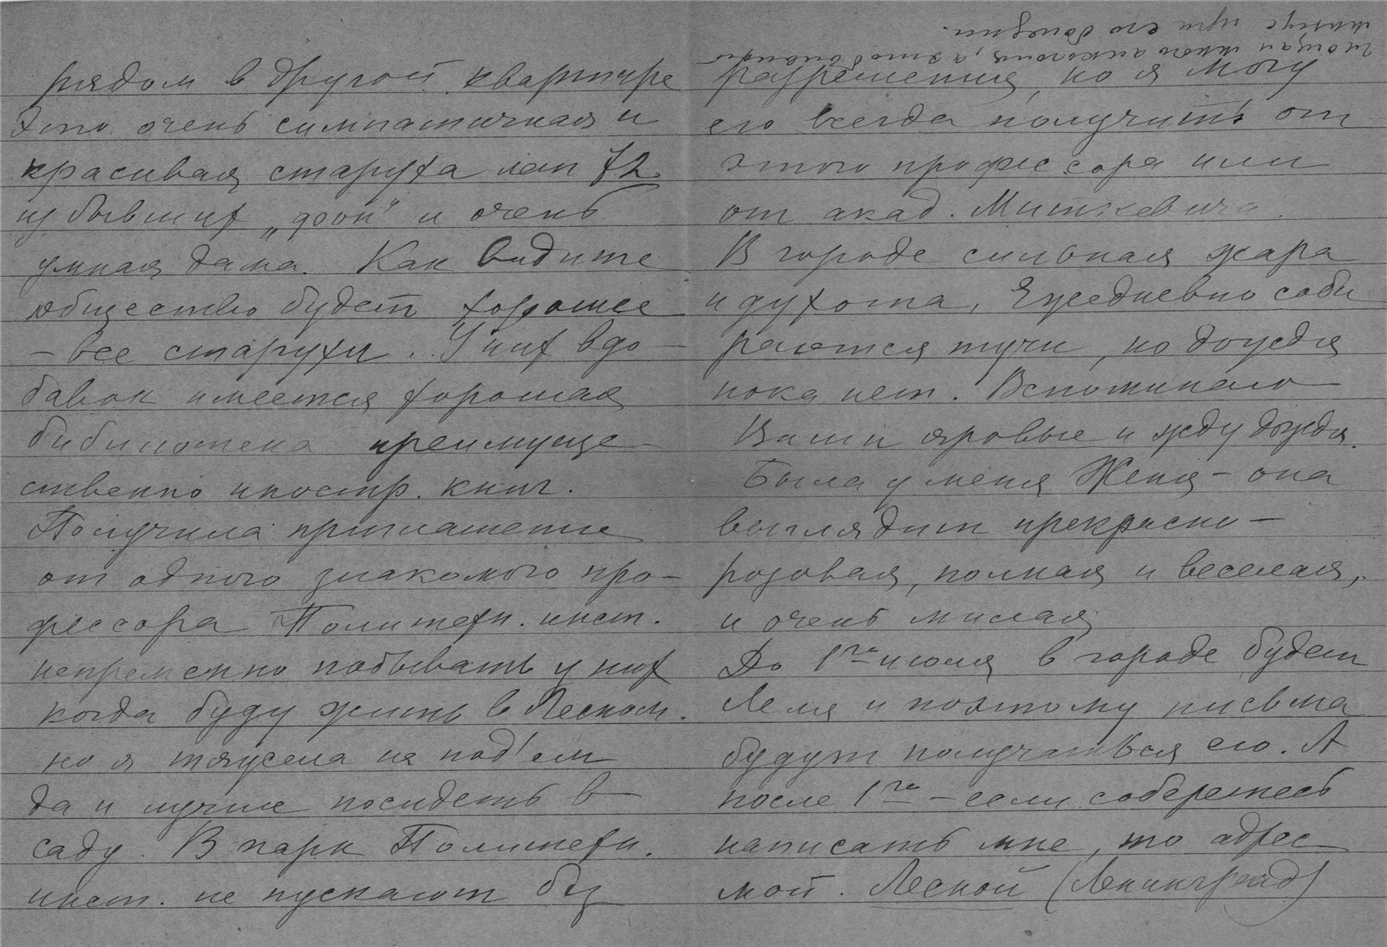 рядом в другой квартире
Это очень симпатичная и
красивая старуха лет 72
из бывших „фон" и очень
умная дама. Как видите
общество будет хорошее
– все старухи. У них вдо-
бавок имеется хорошая
библиотека преимуще-
ственно иностр. книг.
Получила приглашение
от одного знакомого про-
фессора Политехн. инст.
непременно побывать у них
когда буду жить в Лесном.
но я тяжела на под'ем
да и лучше посидеть в
саду. В парк Политехн.
инст. не пускают без
разрешения, но я могу
его всегда получить от
этого профессора или
от акад. Миткевича.
В городе сильная жара
и духота, Ежедневно соби
раются тучи, но дождя
пока нет. Вспоминаю
Ваши яровые и жду дождя.
Была у меня Женя – она
выглядит прекрасно –
розовая, полная и веселая,
и очень милая
До 1го июля в городе будет
Леля и поэтому письма
будут получаться ею. А
после 1го – если соберетесь
написать мне, то адрес
мой. Лесной (Ленинград)
много алкоголя, а это большой
минус при его болезни.